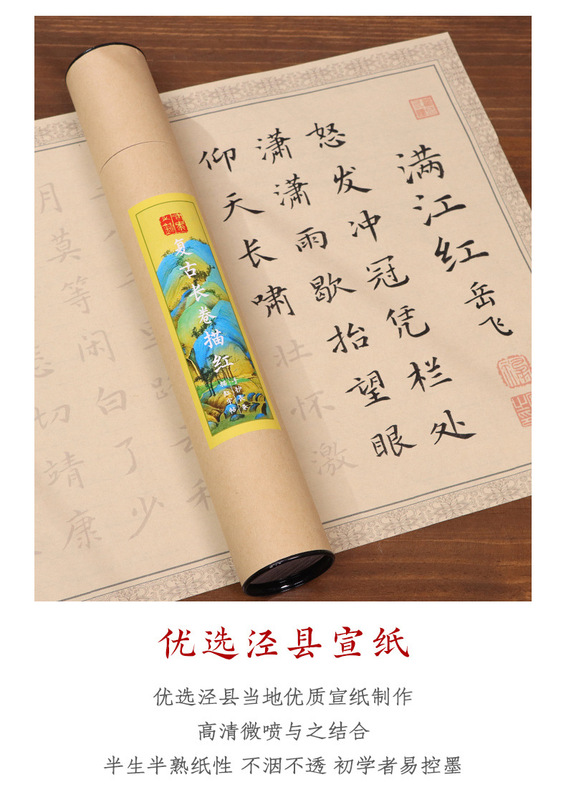 满江红
岳飞
怒发冲冠凭栏处
潇潇雨歇抬望眼
仰天长啸
壮怀激
月莫等闲白了少
切靖康
复古长卷描红
优选泾县宣纸
优选泾县当地优质宣纸制作
高清微喷与之结合
半生半熟纸性 不洇不透 初学者易控墨